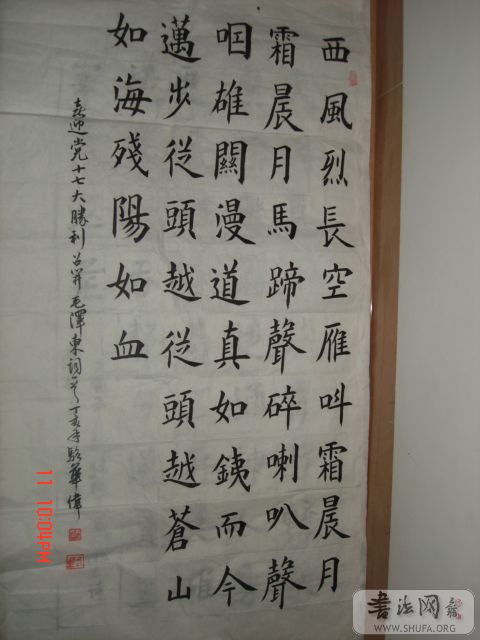 西風烈長空雁叫霜晨月
霜晨月馬蹄聲碎喇叭聲
咽雄關漫道真如銕而今
邁步從頭越從頭越蒼山
如海殘陽如血
喜迎党十七大勝利召開毛澤東詞一首丁亥年駱華偉
11 10:04PM
書法网
WWW.SHUFA.ORG